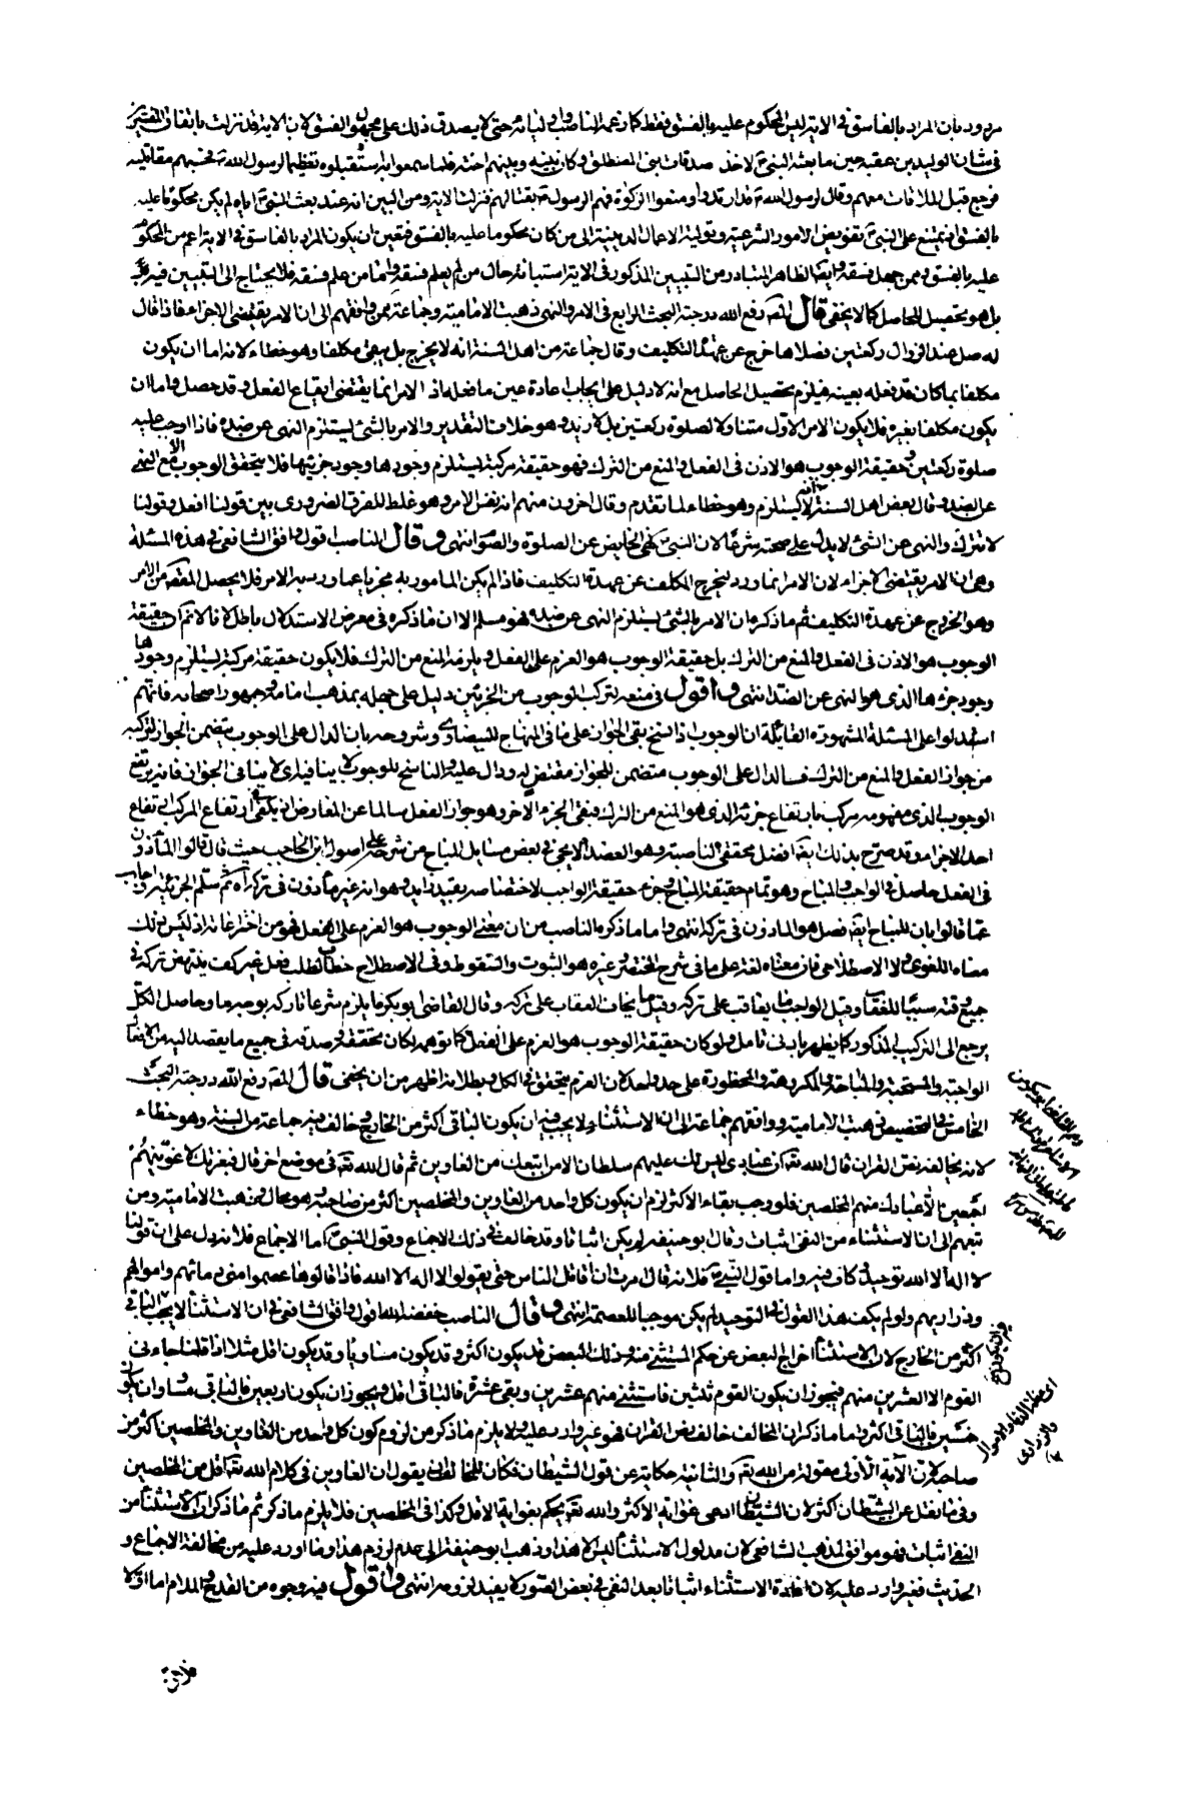 مردود بان المراد بالفاسق في الاية ليس المحكوم عليه بالفسق فقط كما زعمه الناصب واولياؤه حتى لا يصدق ذلك على مجهول الفسق لان الاية قد نزلت باتفاق المفسرين
في شان الوليد بن عقبة حين ما بعثه النبي ص لاخذ صدقات بني المصطلق وكان بينه وبينهم احنة فلما سمعوا به استقبلوه تعظيما لرسول الله ص فحسبهم مقاتليه
فرجع قبل الملاقات معهم وقال لرسول الله ص قد ارتدوا ومنعوا الزكوة فهم الرسول ص بقتالهم فنزلت الاية ومن البين انه عند بعث النبي ص اياه لم يكن محكوما عليه
بالفسق اذ يمتنع على النبي ص تفويض الامور الشرعية وتولية الاعمال الدينية الى من كان محكوما عليه بالفسق فتعين ان يكون المراد بالفاسق في الاية اعم من المحكوم
عليه بالفسق وممن جهل فسقه وايضا الظاهر المتبادر من التبيين المذكور في الاية استبانة حال من لم يعلم فسقه واما من علم فسقه فلا يحتاج الى التبيين فيه
بل هو تحصيل الحاصل كما لا يخفى قال المصـ رفع الله درجته البحث الرابع في الامر والنهي ذهبت الامامية وجماعة ممن وافقهم الى ان الامر يقتضي الاجزاء فاذا قال
له صل عند الزوال ركعتين فصلاها خرج عن عهدة التكليف وقال جماعة من اهل السنة انه لا يخرج بل يبقى مكلفا وهو خطاء لانه اما ان يكون
مكلفا بما كان قد فعله بعينه فيلزم تحصيل الحاصل مع انه لا دليل على ايجاب اعادة عين ما فعله اذ الامر انما يقتضي ايقاع الفعل وقد حصل واما ان
يكون مكلفا بغيره فلا يكون الامر الاول متناولا لصلوة ركعتين بل لازيد وهو خلاف التقدير والامر بالشئ يستلزم النهي عن ضده فاذا اوجب عليه
صلوة ركعتين وحقيقة الوجوب هو الاذن في الفعل والمنع من الترك فهو حقيقة مركبة يستلزم وجودها وجود جزئيها فلا يتحقق الوجوب الا مع النهي
عن الضد وقال بعض اهل السنة انه لا يستلزم وهو خطاء لما تقدم وقال اخرون منهم انه نفس الامر وهو غلط للفرق الضروري بين قولنا افعل وقولنا
لا تترك والنهي عن الشئ لا يدل على صحته شرعا لان النبي ص نهى الحايض عن الصلوة والصوم انتهى وقال الناصب اقول وافق الشافعي في هذه المسئلة
وهي ان الامر يقتضي الاجزاء لان الامر انما ورد ليخرج المكلف عن عهدة التكليف فاذا لم يكن المامور به مجزيا عما ورد به الامر فلا يحصل المقصـ من الامر
وهو الخروج عن عهدة التكليف ثم ما ذكره ان الامر بالشئ يستلزم النهي عن ضده فهو مسلم الا ان ما ذكره في معرض الاستدلال باطل لانا لا نم ان حقيقة
الوجوب هو الاذن في الفعل والمنع من الترك بل حقيقة الوجوب هو العزم على الفعل ويلزمه المنع من الترك فلا يكون حقيقة مركبة يستلزم وجودها
وجود جزئها الذي هو النهي عن الضد انتهى واقول في منعه لتركب الوجوب من الجزئين دليل على جهله بمذهب امامه وجمهور اصحابه فانهم
استدلوا على المسئلة المشهورة القائلة ان الوجوب اذا نسخ بقي الجواز على ما في المنهاج للبيضاوي وشروحه بان الدال على الوجوب يتضمن الجواز لتركبه
من جواز الفعل والمنع من الترك فالدال على الوجوب متضمن للجواز مقتض له ودال عليه والناسخ للوجوب لا ينافيه اي لا ينافي الجواز فانه يرتفع
الوجوب الذي مفهومه مركب بارتفاع جزئه الذي هو المنع من الترك فبقي الجزء الاخر وهو جواز الفعل سالما عن المعارض اذ يكفي في ارتفاع المركب ارتفاع
احد الاجزاء وقد صرح بذلك ايضا افضل محققي الناصبة وهو العضد الايجي في بعض مسايل المباح من شرحه على اصول ابن الحاجب حيث قال قالوا الماذون
في الفعل حاصل في الواجب والمباح وهو تمام حقيقة المباح وجزء حقيقة الواجب لاختصاصه بقيد زايد وهو انه غير ماذون في تركه اه ثم سلم الجزئية واجاب
عما قالوا بان للمباح ايضا فصل هو الماذون في تركه انتهى واما ما ذكره الناصب من ان معنى الوجوب هو العزم على الفعل فهو من اختراعاته اذ ليس ذلك
معناه اللغوي ولا الاصطلاحي فان معناه لغة على ما في شرح المختصر وغيره هو الثبوت والسقوط وفي الاصطلاح خطاب لطلب فعل غير كف ينتهض تركه في
جميع وقته سببا للعقاب وقيل الواجب ما يعاقب على تركه وقيل ما يخاف العقاب على تركه وقال القاضي ابو بكر ما يذم شرعا تاركه بوجه ما وحاصل الكل
يرجع الى التركيب المذكور كما يظهر بادنى تامل ولو كان حقيقة الوجوب هو العزم على الفعل كما توهمه لكان تحققه وصدقه في جميع ما يقصد اليه من الافعال
الواجبة والمستحبة والمباحة والمكروهة والمحظورة على حد واحد لان العزم يتحقق في الكل وبطلانه اظهر من ان يخفى قال المصـ رفع الله درجته البحث
الخامس في التخصيص ذهبت الامامية ووافقهم جماعة الى ان الاستثناء لا يجب فيه ان يكون الباقي اكثر من الخارج وخالف فيه جماعة من السنة وهو خطاء
لانه يخالف نص القران قال الله تعـ ان عبادي ليس لك عليهم سلطان الا من اتبعك من الغاوين ثم قال الله تعـ في موضع اخر قال فبعزتك لاغوينهم
اجمعين الا عبادك منهم المخلصين فلو وجب بقاء الاكثر لزم ان يكون كل واحد من الغاوين والمخلصين اكثر من صاحبه وهو محال وذهبت الامامية ومن
تبعهم الى ان الاستثناء من النفي اثبات وقال ابو حنيفة لم يكن اثباتا وقد خالف في ذلك الاجماع وقول النبي ص اما الاجماع فلانه دل على ان قولنا
لا اله الا الله توحيد وكاف فيه واما قول النبي ص فلانه قال امرت ان اقاتل الناس حتى يقولوا لا اله الا الله فاذا قالوها عصموا مني دماءهم واموالهم
وذراريهم ولو لم يكف هذا القول في التوحيد لم يكن موجبا للعصمة انتهى وقال الناصب خفضه الله اقول وافق الشافعي في ان الاستثناء لا يجب الباقي
اكثر من الخارج لان الاستثناء اخراج البعض عن حكم المستثنى منه وذلك البعض قد يكون اكثر وقد يكون مساويا وقد يكون اقل مثلا اذا قلنا جاءني
القوم الا العشرين منهم فيجوز ان يكون القوم ثلثين فاستثني منهم عشرين وبقي عشرة فالباقي اقل ويجوز ان يكون اربعين فالباقي مساو وان يكون
خمسين فالباقي اكثر واما ما ذكر ان المخالف خالف نص القران فهو غير وارد عليه ولا يلزم ما ذكر من لزوم كون كل واحد من الغاوين والمخلصين اكثر من
صاحبه لان الاية الاولى مقولة من الله تعـ والثانية حكاية عن قول الشيطان فكان للمخالف ان يقول ان الغاوين في كلام الله تعـ اقل من المخلصين
وفي ما نقل عن الشيطان اكثر لان الشيطان ادعى غواية الاكثر والله تعـ يحكم بغواية الاقل وكذا في المخلصين فلا يلزم ما ذكر ثم ما ذكر ان الاستثناء من
النفي اثبات فهو موافق لمذهب الشافعي لان مدلول الاستثناء ليس الا هذا وذهب ابو حنيفة الى عدم لزوم هذا وما اورد عليه من مخالفة الاجماع و
الحديث فغير وارد عليه لان افادة الاستثناء اثباتا بعد النفي في بعض الصور لا يفيد لزومه انتهى واقول فيه وجوه من القدح والملام اما اولا